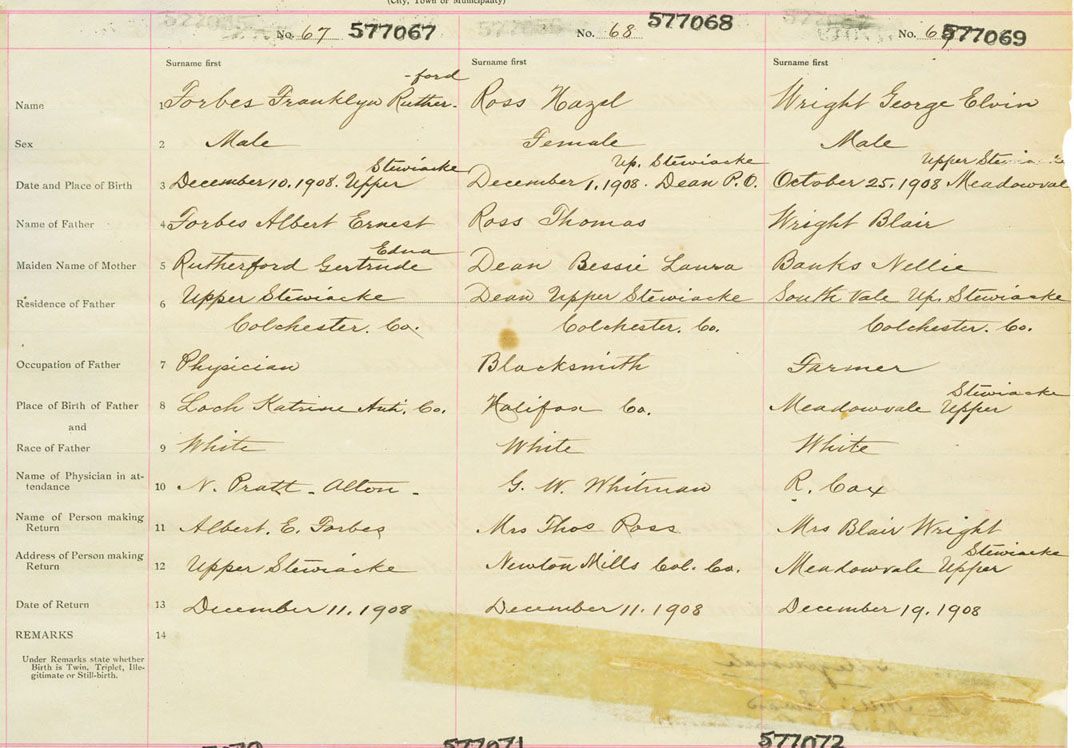 (City, Town or Municipality)
No. 67 577067 No. 68 577068 No. 69 577069
Surname first Surname first Surname first
-ford
Name 1 Forbes Franklyn Ruther- Ross Hazel Wright George Elvin
Sex 2 Male Female Male
Stewiacke Up. Stewiacke Upper
Date and Place of Birth 3 December 10, 1908. Upper December 1, 1908. Dean P.O. October 25, 1908 Meadowval
Name of Father 4 Forbes Albert Ernest Ross Thomas Wright Blair
Edna
Maiden Name of Mother 5 Rutherford Gertrude Dean Bessie Laura Banks Nellie
Residence of Father 6 Upper Stewiacke Dean Upper Stewiacke South Vale Up. Stewiacke
Colchester. Co. Colchester. Co. Colchester. Co.
Occupation of Father 7 Physician Blacksmith Farmer
Stewiacke
Place of Birth of Father 8 Loch Katrine Anti. Co. Halifax Co. Meadowvale Upper
and
Race of Father 9 White White White
Name of Physician in at-
tendance 10 N. Pratt - Alton - G. W. Whitman R. Cox
Name of Person making
Return 11 Albert. E. Forbes Mrs Thos Ross Mrs Blair Wright
Stewiacke
Address of Person making
Return 12 Upper Stewiacke Newton Mills Col. Co. Meadowvale Upper
Date of Return 13 December 11, 1908 December 11, 1908 December 19, 1908
REMARKS 14
Under Remarks state whether
Birth is Twin, Triplet, Ille-
gitimate or Still-birth.
577071 577072